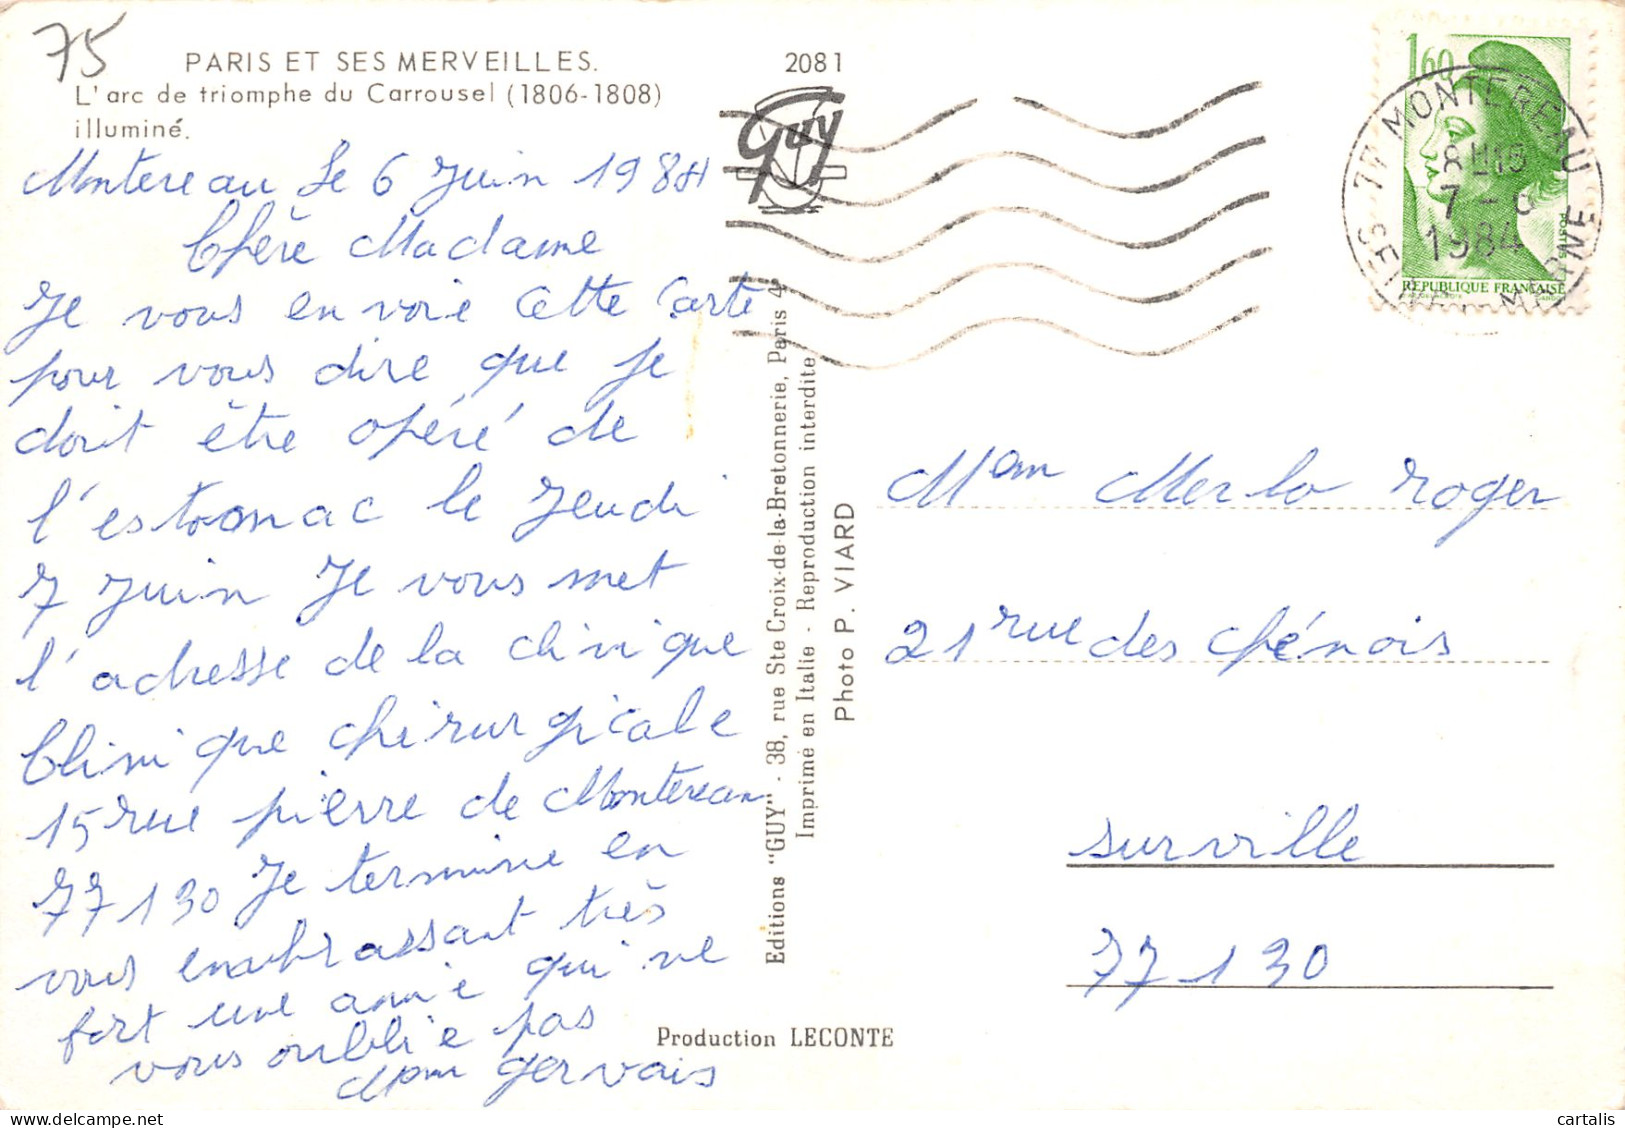 75
PARIS ET SES MERVEILLES.
L'arc de triomphe du Carrousel (1806-1808)
illuminé.
2081
Guy
Montereau Le 6 Juin 1984
Chère Madame
Je vous envoie cette Carte
pour vous dire que je
doit être opéré de
l'estomac le Jeudi
7 Juin Je vous met
l'adresse de la clinique
Clinique chirurgicale
15 rue pierre de Montereau
77130 Je termine en
vous embrassant très
fort une amie qui ne
vous oublie pas
Mme gervais
Editions "GUY" - 38, rue Ste Croix-de-la-Bretonnerie, Paris 4
Imprimé en Italie - Reproduction interdite
Photo P. VIARD
Production LECONTE
1,60
POSTES
REPUBLIQUE FRANÇAISE
77 MONTEREAU
7 - 6
1984
SEINE ET MARNE
Mam Merlo roger
21 rue des chénois
surville
77130
cartalis